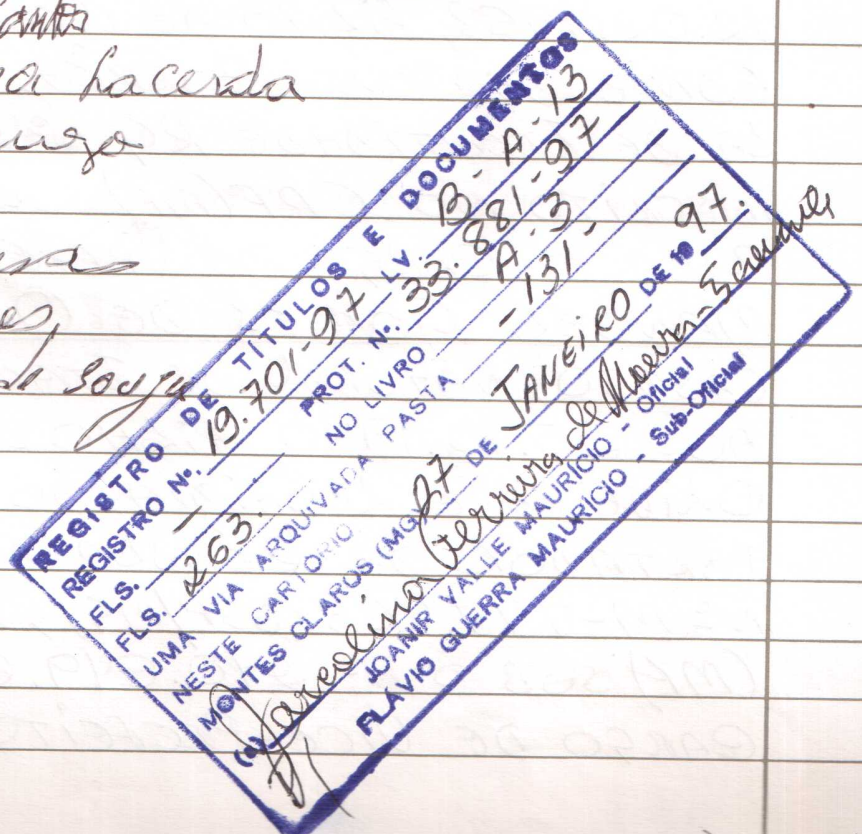 a Lacerda
de Souza
REGISTRO DE TÍTULOS E DOCUMENTOS
REGISTRO Nº. 19.701-97 LV. B-A-13
FLS. - PROT. Nº. 33.881-97
FLS. 263. NO LIVRO A-3
UMA VIA ARQUIVADA PASTA -131-
NESTE CARTORIO
MONTES CLAROS (MG) 27 DE JANEIRO DE 19 97.
(a) Marcolina Ferreira de Moura - Escrevente
JOANIR VALLE MAURÍCIO - Oficial
FLÁVIO GUERRA MAURÍCIO - Sub-Oficial